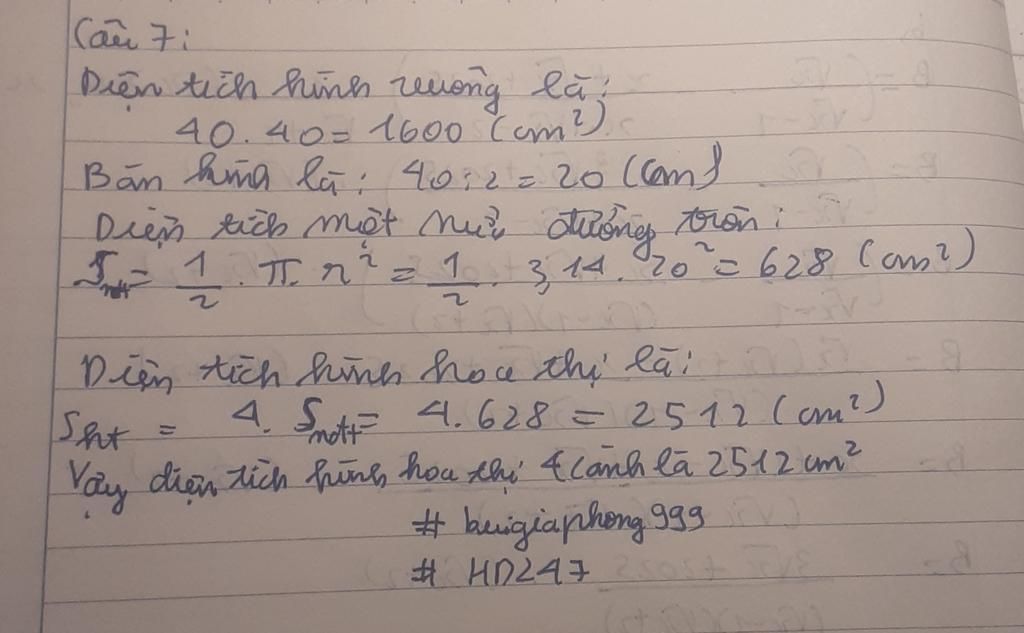 Câu 7:
Diện tích hình vuông là:
40.40 = 1600 (cm²)
Bán kính là: 40:2 = 20 (cm)
Diện tích một nửa đường tròn:
S = 1/2 . π. r² = 1/2 . 3,14. 20² = 628 (cm²)
Diện tích hình hoa thị là:
Sht = 4. Snđtt = 4.628 = 2512 (cm²)
Vậy diện tích hình hoa thị 4 cánh là 2512 cm²
# buigiaphong999
# HD247